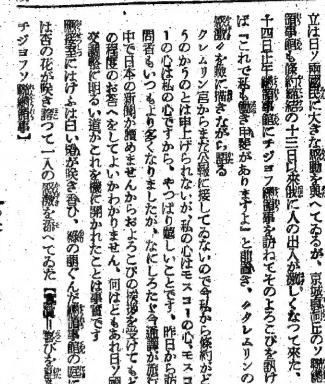 立は日ソ兩國民に大きな感動を與へてゐるが、京城貞洞丘のソ聯總
領事館も條約締結の十三日以來俄に人の出入が激しくなつて來た、
十四日正午總領事館にチジヨフ總領事を訪ねてそのよろこびを訊け
ば『これで私も働き甲斐がありますよ』と前置き、〝クレムリンの
感激〟を胸に描きながら語る
クレムリン宮からまだ公報に接してゐないので今私から條約がど
うのかうのとは申上げられないが、私の心はモスコーの心、モスコ
ーの心は私の心ですから、やつぱり嬉しいことです、昨日から訪
問者もいつもより多くなりましたが、なにしろたゞ今通譯が旅行
中で日本の新聞が讀めませんからおよろこびの挨拶を受けてもど
の程度のお答へをしてよいかわかりません、何はともあれ日ソ國
交調整に明るい道がこれを機に開かれたことは事實です
應接室にはけふは白い
は杏の花が咲き誇つて一人の感激を添へてゐた【寫眞＝喜びを語る
チジヨフソ聯總領事】